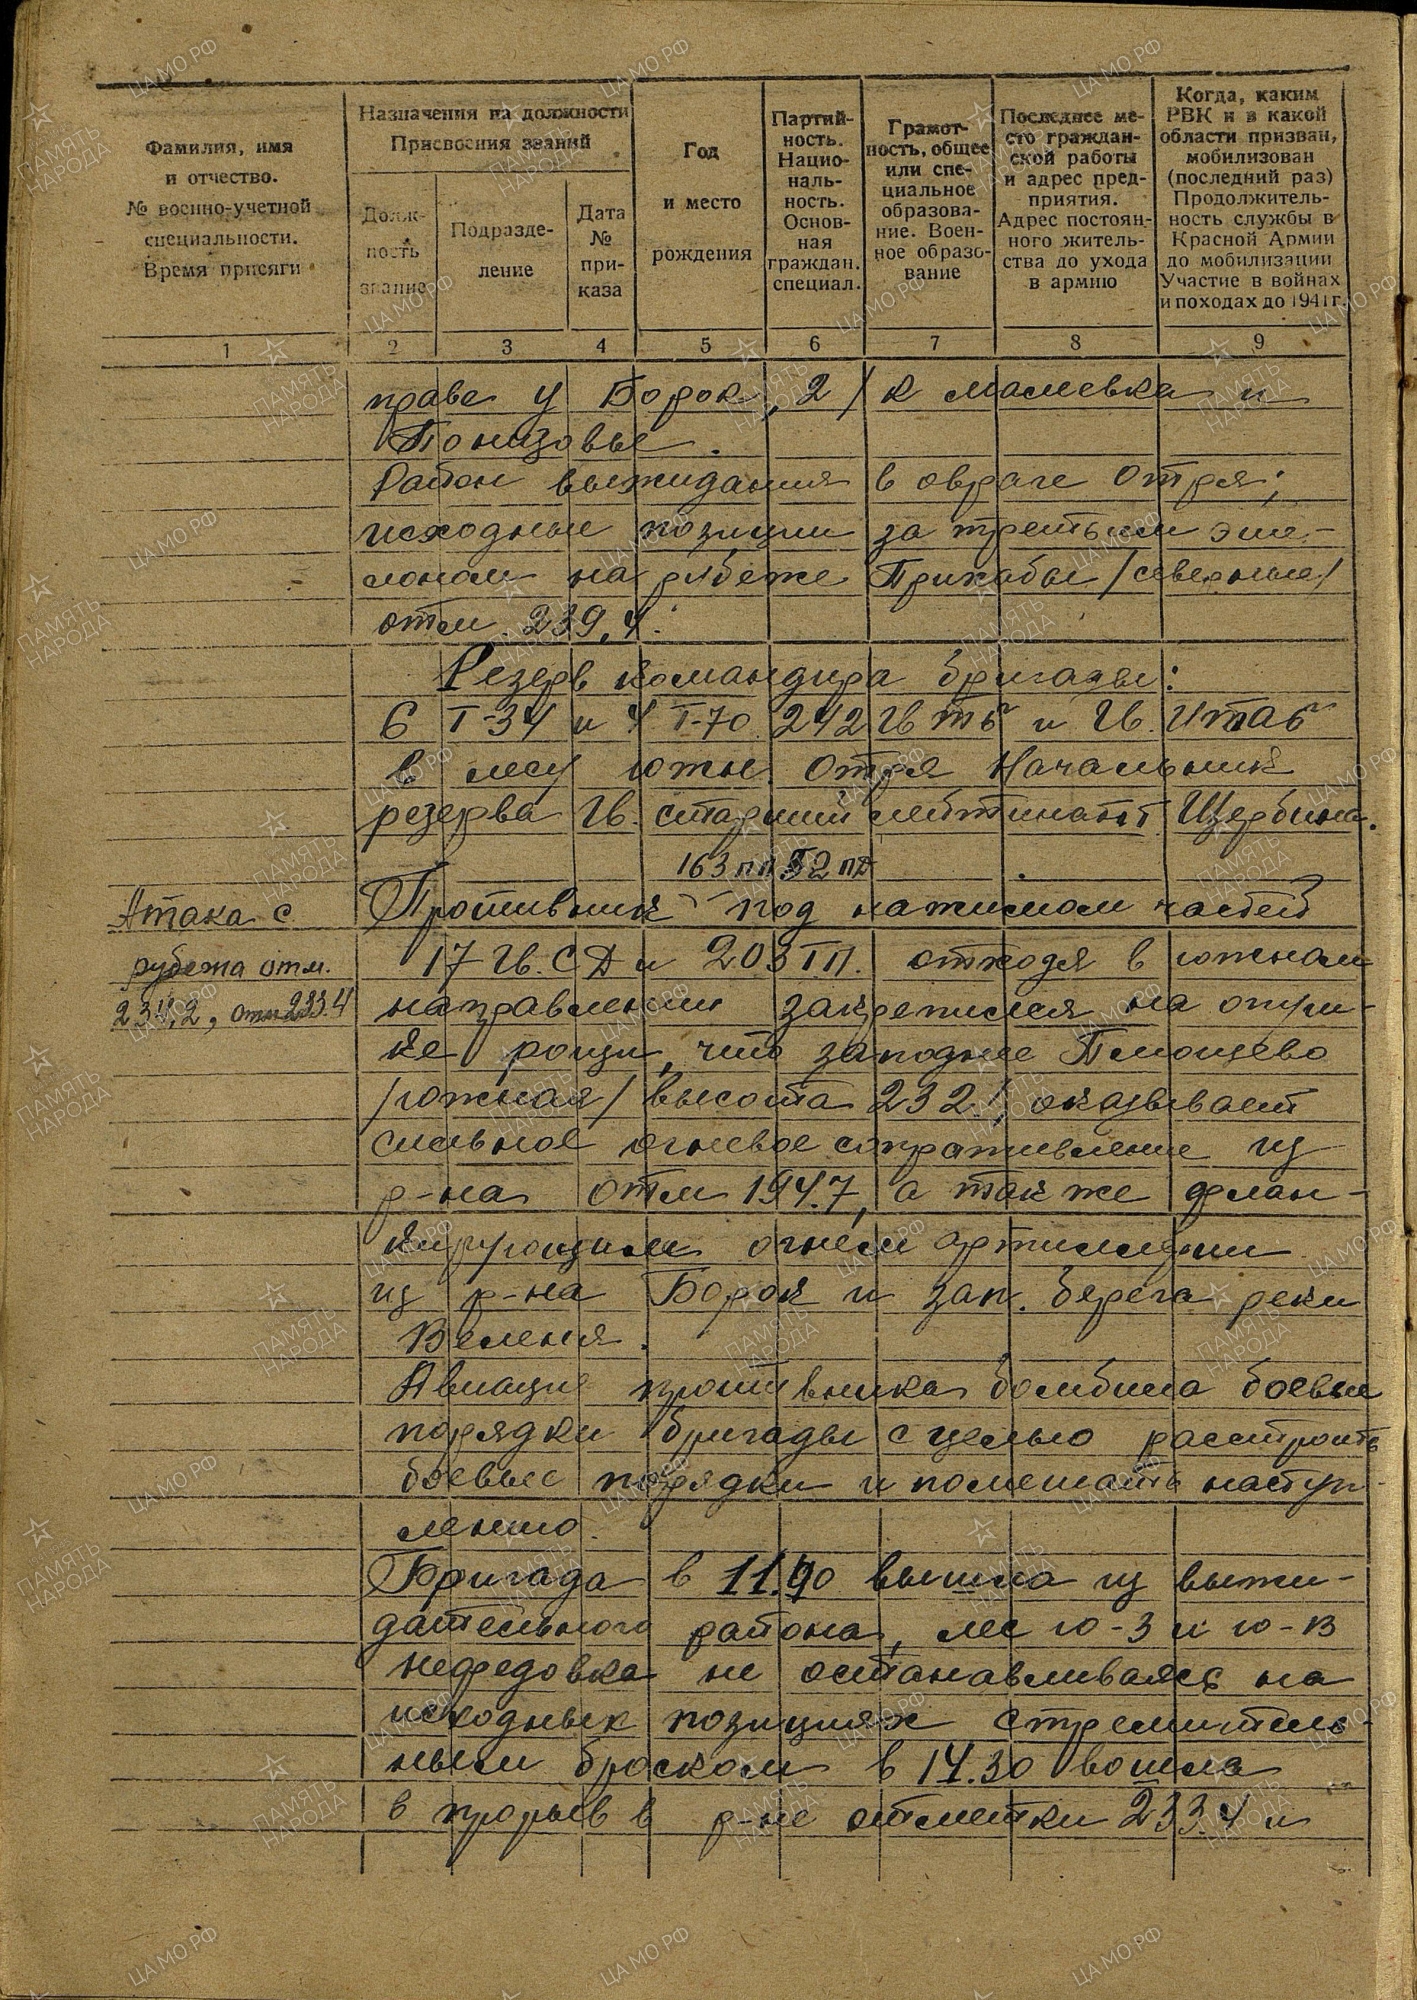 Фамилия, имя
и отчество.
№ военно-учетной
специальности.
Время присяги
Назначения на должности
Присвоения званий
Долж-
ность
звание
Подразде-
ление
Дата
№
при-
каза
Год
и место
рождения
Партий-
ность.
Нацио-
наль-
ность.
Основ-
ная
граждан.
специал.
Грамот-
ность, общее
или спе-
циальное
образова-
ние. Воен-
ное образо-
вание
Последнее ме-
сто граждан-
ской работы
и адрес пред-
приятия.
Адрес постоян-
ного житель-
ства до ухода
в армию
Когда, каким
РВК и в какой
области призван,
мобилизован
(последний раз)
Продолжитель-
ность службы в
Красной Армии
до мобилизации
Участие в войнах
и походах до 1941 г.
1 2 3 4 5 6 7 8 9
праве у Борок, 2/ к Малеевка и
Понизовье.
Район выжидания в овраге Отря;
исходные позиции за третьим эше-
лоном на рубеже Прихабы /северные/
отм. 239,4.
Резерв командира бригады:
6 Т-34 и 4 Т-70 242 Гв тб и Гв. Итаб
в лесу южн. Отря Начальник
резерва Гв. старший лейтинант Щербина.
163 пп 52 пд
Атака с
рубежа отм.
234,2, отм 233.4
Противник под нажимом частей
17 Гв. СД и 203 ТП. отходя в южном
направлении закрепился на опуш-
ке рощи, что западнее Плющево
/южная/ высота 232.1, оказывает
сильное огневое сопративление из
р-на отм 194.7, а так же флан-
кирующим огнем артиллерии
из р-на Борок и зап. берега реки
Веленя.
Авиация противника бомбила боевые
порядки бригады с целью расстроить
боевые порядки и помешать наступ-
лению.
Бригада в 11.40 вышла из выжи-
дательного района, лес ю-З и ю-В
Нефедовка не останавливаясь на
исходных позициях стремитель-
ным броском в 14.30 вошла
в прорыв в р-не отметки 233.4 и
ЦАМО.РФ
ПАМЯТЬ
НАРОДА